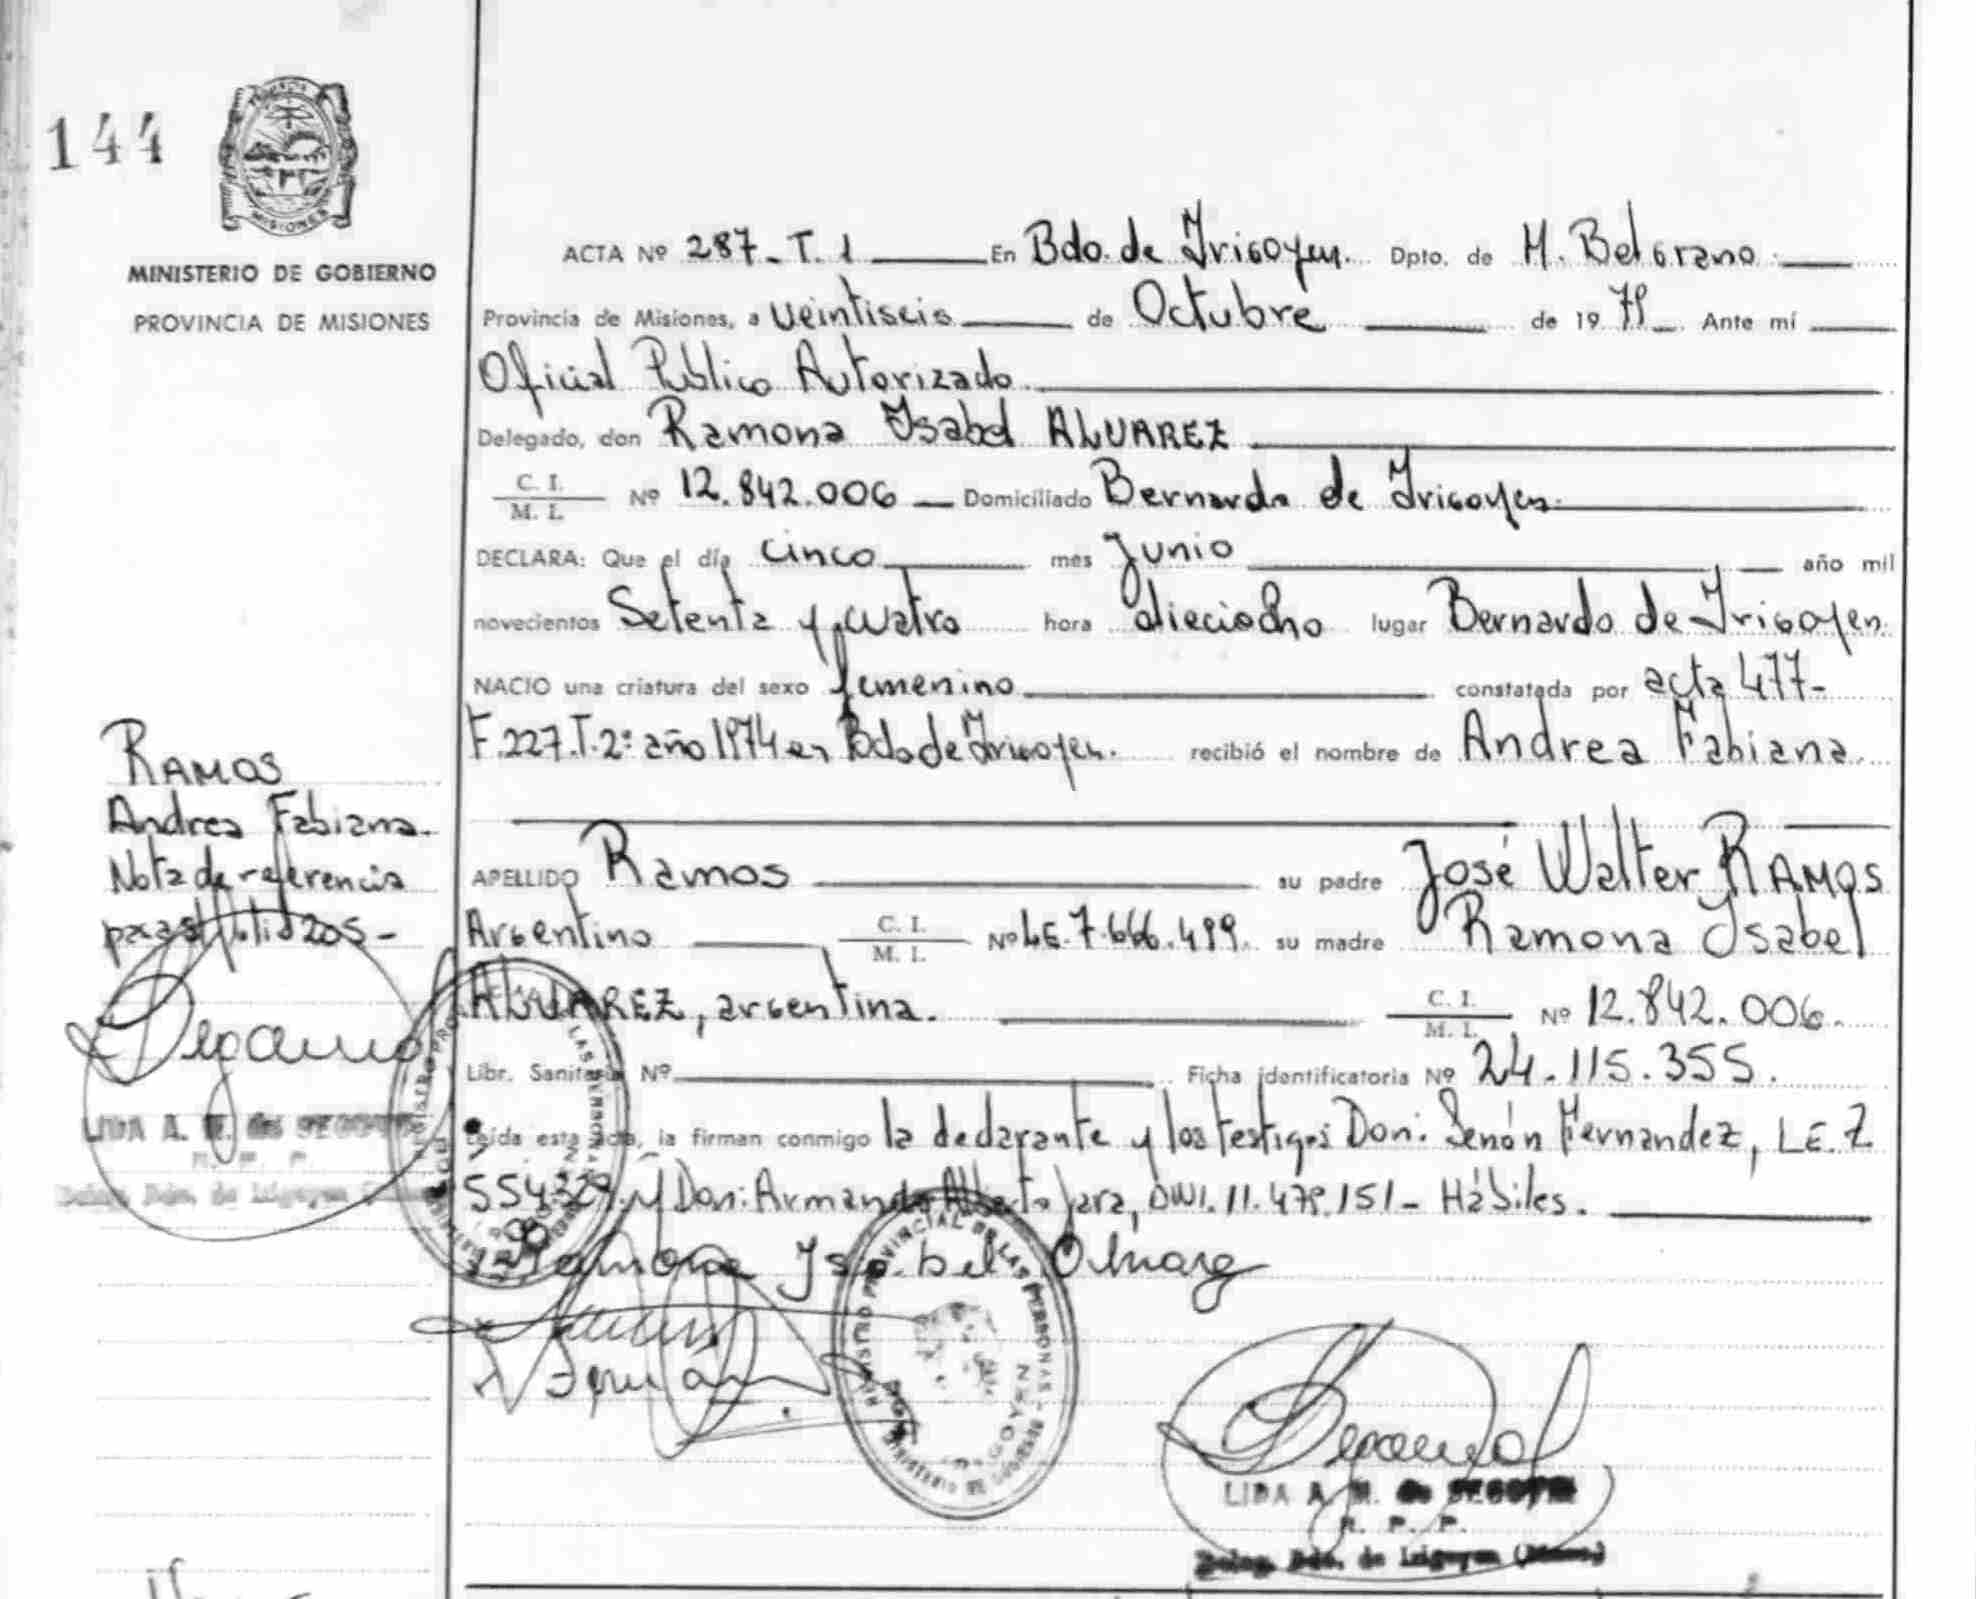 144
MINISTERIO DE GOBIERNO
PROVINCIA DE MISIONES
ACTA Nº 287-T.1 En Bdo. de Irigoyen. Dpto. de M. Belgrano
Provincia de Misiones, a veintiseis de Octubre de 19 79 Ante mí
Oficial Público Autorizado
Delegado, don Ramona Isabel ALVAREZ
C. I.
M. I. Nº 12.842.006 Domiciliado Bernardo de Irigoyen
DECLARA: Que el día cinco mes Junio año mil
novecientos Setenta y cuatro hora dieciocho lugar Bernardo de Irigoyen
NACIO una criatura del sexo femenino constatada por acta 477-
F.227.T.2º año 1974 en Bdo de Irigoyen. recibió el nombre de Andrea Fabiana
APELLIDO Ramos su padre José Walter RAMOS
Argentino C. I. M. I. Nº LE.7.666.499. su madre Ramona Isabel
ALVAREZ, argentina. C. I. M. I. Nº 12.842.006.
Libr. Sanitaria Nº Ficha identificatoria Nº 24.115.355.
Leída esta acta, la firman conmigo la declarante y los testigos Don: Senón Fernandez, LE. 7
y Don: Armando Alberto Jara, DNI. 11.479.151- Hábiles.
Ramona Isabel Alvarez
RAMOS
Andrea Fabiana.
Nota de referencia
LIDA A. M. de
M. P. P.
Deleg. Bdo. de Irigoyen
REGISTRO PROVINCIAL DE LAS PERSONAS
MINISTERIO DE GOBIERNO
LIDA A. M. de
M. P. P.
Deleg. Bdo. de Irigoyen (Mnes.)